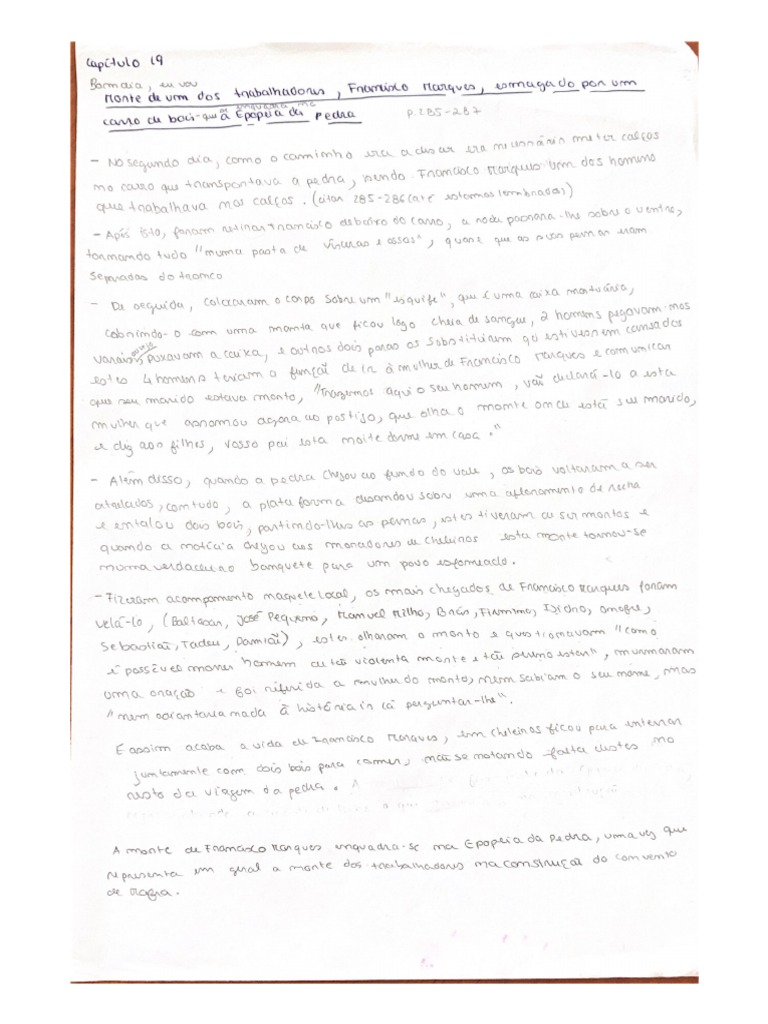 Capítulo 19
Bom dia, eu vou
Morte de um dos trabalhadores, Francisco Marques, esmagado por um
carro de bois - que se enquadra na Epopeia da Pedra p.285-287
- No segundo dia, como o caminho era a descer era necessário meter calços
no carro que transportava a pedra, sendo Francisco Marques um dos homens
que trabalhava nos calços. (citar 285-286 (até estarmos lembrados)
- Após isto, foram retirar Francisco debaixo do carro, a roda passara-lhe sobre o ventre,
tornando tudo "numa pasta de vísceras e ossos", quase que as suas pernas eram
separadas do tronco
- De seguida, colocaram o corpo sobre um "esquife", que é uma caixa mortuária,
cobrindo-o com uma manta que ficou logo cheia de sangue, 2 homens pegavam nos
varais, puxavam a caixa, e outros dois para os substituirem qd estivessem cansados
estes 4 homens teriam a função de ir à mulher de Francisco Marques e comunicar
que seu marido estava morto, "Trazemos aqui o seu homem, vão declará-lo a esta
mulher que assomou agora ao postigo, que olha o monte onde está seu marido,
e diz aos filhos, vosso pai esta noite dorme em casa."
- Além disso, quando a pedra chegou ao fundo do vale, os bois voltaram a ser
atrelados, contudo, a plataforma desandou sobre um afloramento de rocha
e entalou dois bois, partindo-lhes as pernas, estes tiveram de ser mortos e
quando a notícia chegou aos moradores de Cheleiros esta morte tornou-se
num verdadeiro banquete para um povo esfomeado.
- Fizeram acampamento naquele local, os mais chegados de Francisco Marques foram
velá-lo, (Baltasar, José Pequeno, Manuel Milho, Brás, Firmino, Isidro, Onofre,
Sebastião, Tadeu, Damião), estes olharam o morto e questionavam "como
é possível morrer homem de tão violenta morte e tão sereno estar", murmuraram
uma oração e foi referida a mulher do morto, nem sabiam o seu nome, mas
"nem adiantaria nada à história ir lá perguntar-lhe".
E assim acaba a vida de Francisco Marques, em cheleiros ficou para enterrar
juntamente com dois bois para comer, não se notando falta destes no
resto da viagem da pedra.
A morte de Francisco Marques enquadra-se na Epopeia da Pedra, uma vez que
representa em geral a morte dos trabalhadores na construção do convento
de Mafra.